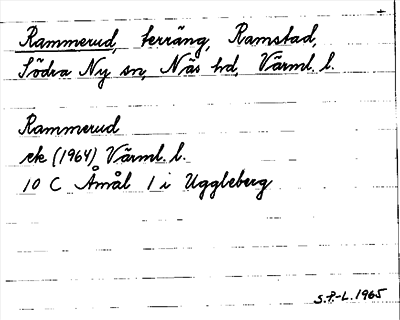 Rammerud, terräng, Ramstad,
Södra Ny sn, Näs hd, Värml. l.
Rammerud
ek (1964) Värml. l.
10 C Åmål 1 i Uggleberg
S.P.-L. 1965